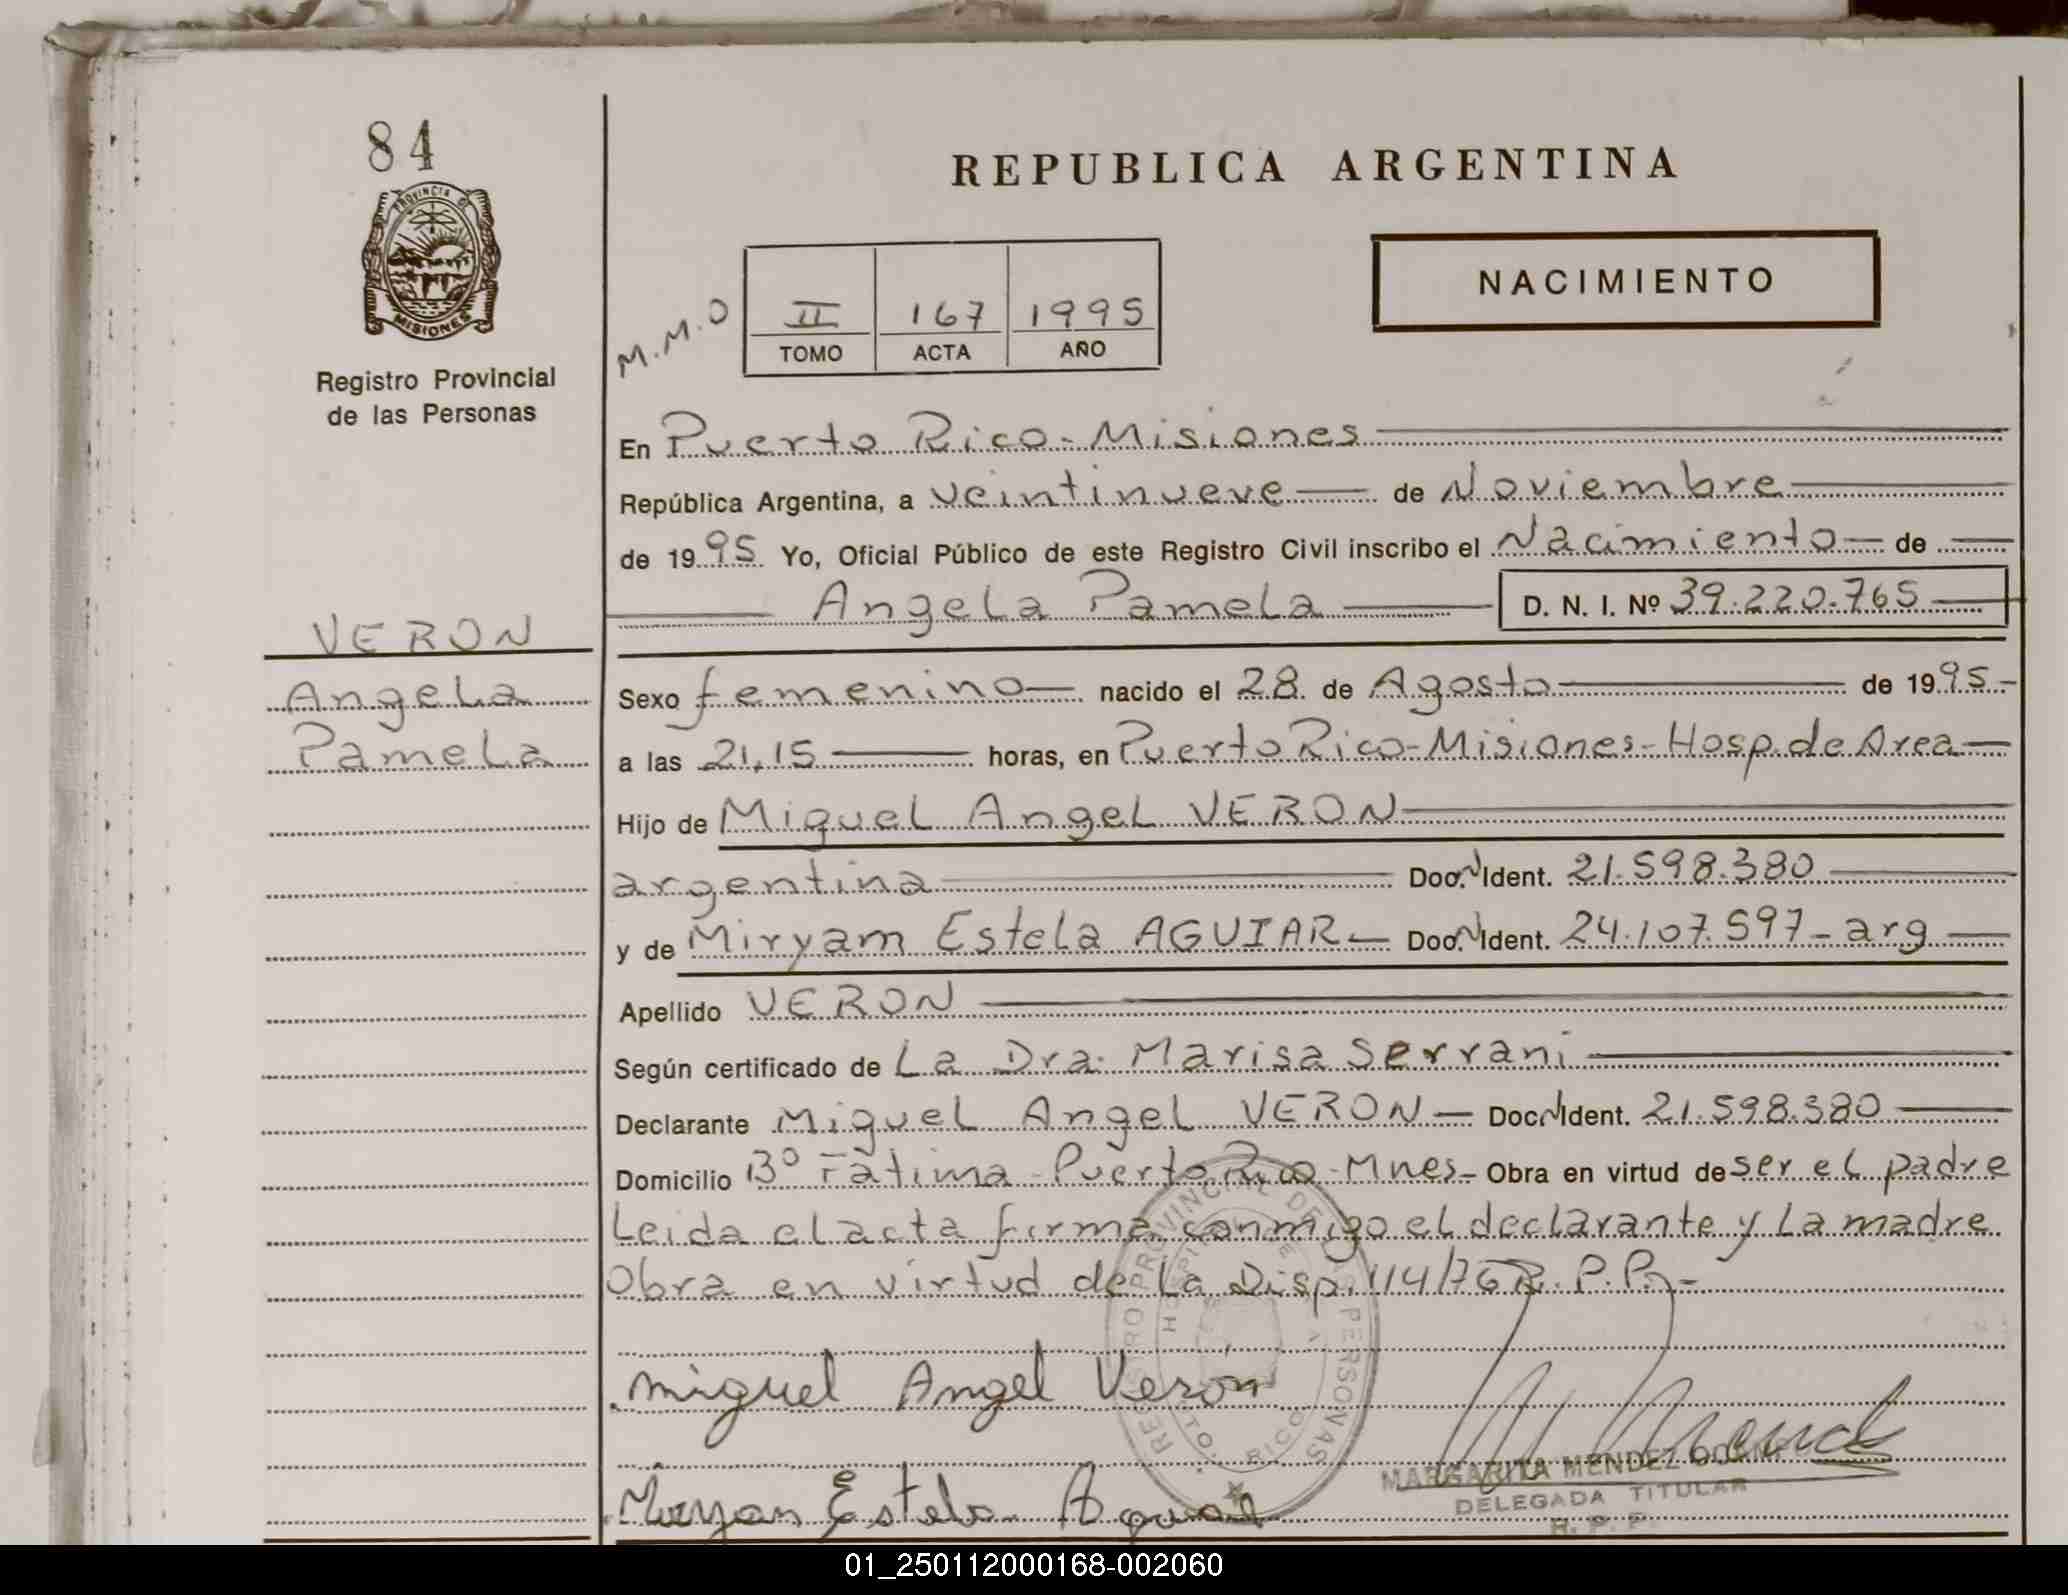 84
PROVINCIA DE
MISIONES
Registro Provincial
de las Personas
REPUBLICA ARGENTINA
NACIMIENTO
M.M.O
II 167 1995
TOMO ACTA AÑO
En Puerto Rico-Misiones
República Argentina, a veintinueve de Noviembre
de 1995 Yo, Oficial Público de este Registro Civil inscribo el Nacimiento de
Angela Pamela D. N. I. Nº 39.220.765
VERON
Angela
Pamela
Sexo femenino nacido el 28 de Agosto de 1995
a las 21,15 horas, en Puerto Rico-Misiones-Hosp. de Area
Hijo de Miguel Angel VERON
argentina Doc. N Ident. 21.598.380
y de Miryam Estela AGUIAR Doc. N Ident. 24.107.597-arg
Apellido VERON
Según certificado de La Dra. Marisa Serrani
Declarante Miguel Angel VERON Doc. N Ident. 21.598.380
Domicilio Bº Fátima-Puerto Rico-Mnes- Obra en virtud de ser el padre
Leida el acta firma conmigo el declarante y La madre
Obra en virtud de La Disp. 114/76 R.P.P.-
REGISTRO PROVINCIAL DE LAS PERSONAS
PTO. RICO
Miguel Angel Veron
Miryan Estela Aguiar
MARGARITA MENDEZ
DELEGADA TITULAR
R. P. P.
01_250112000168-002060